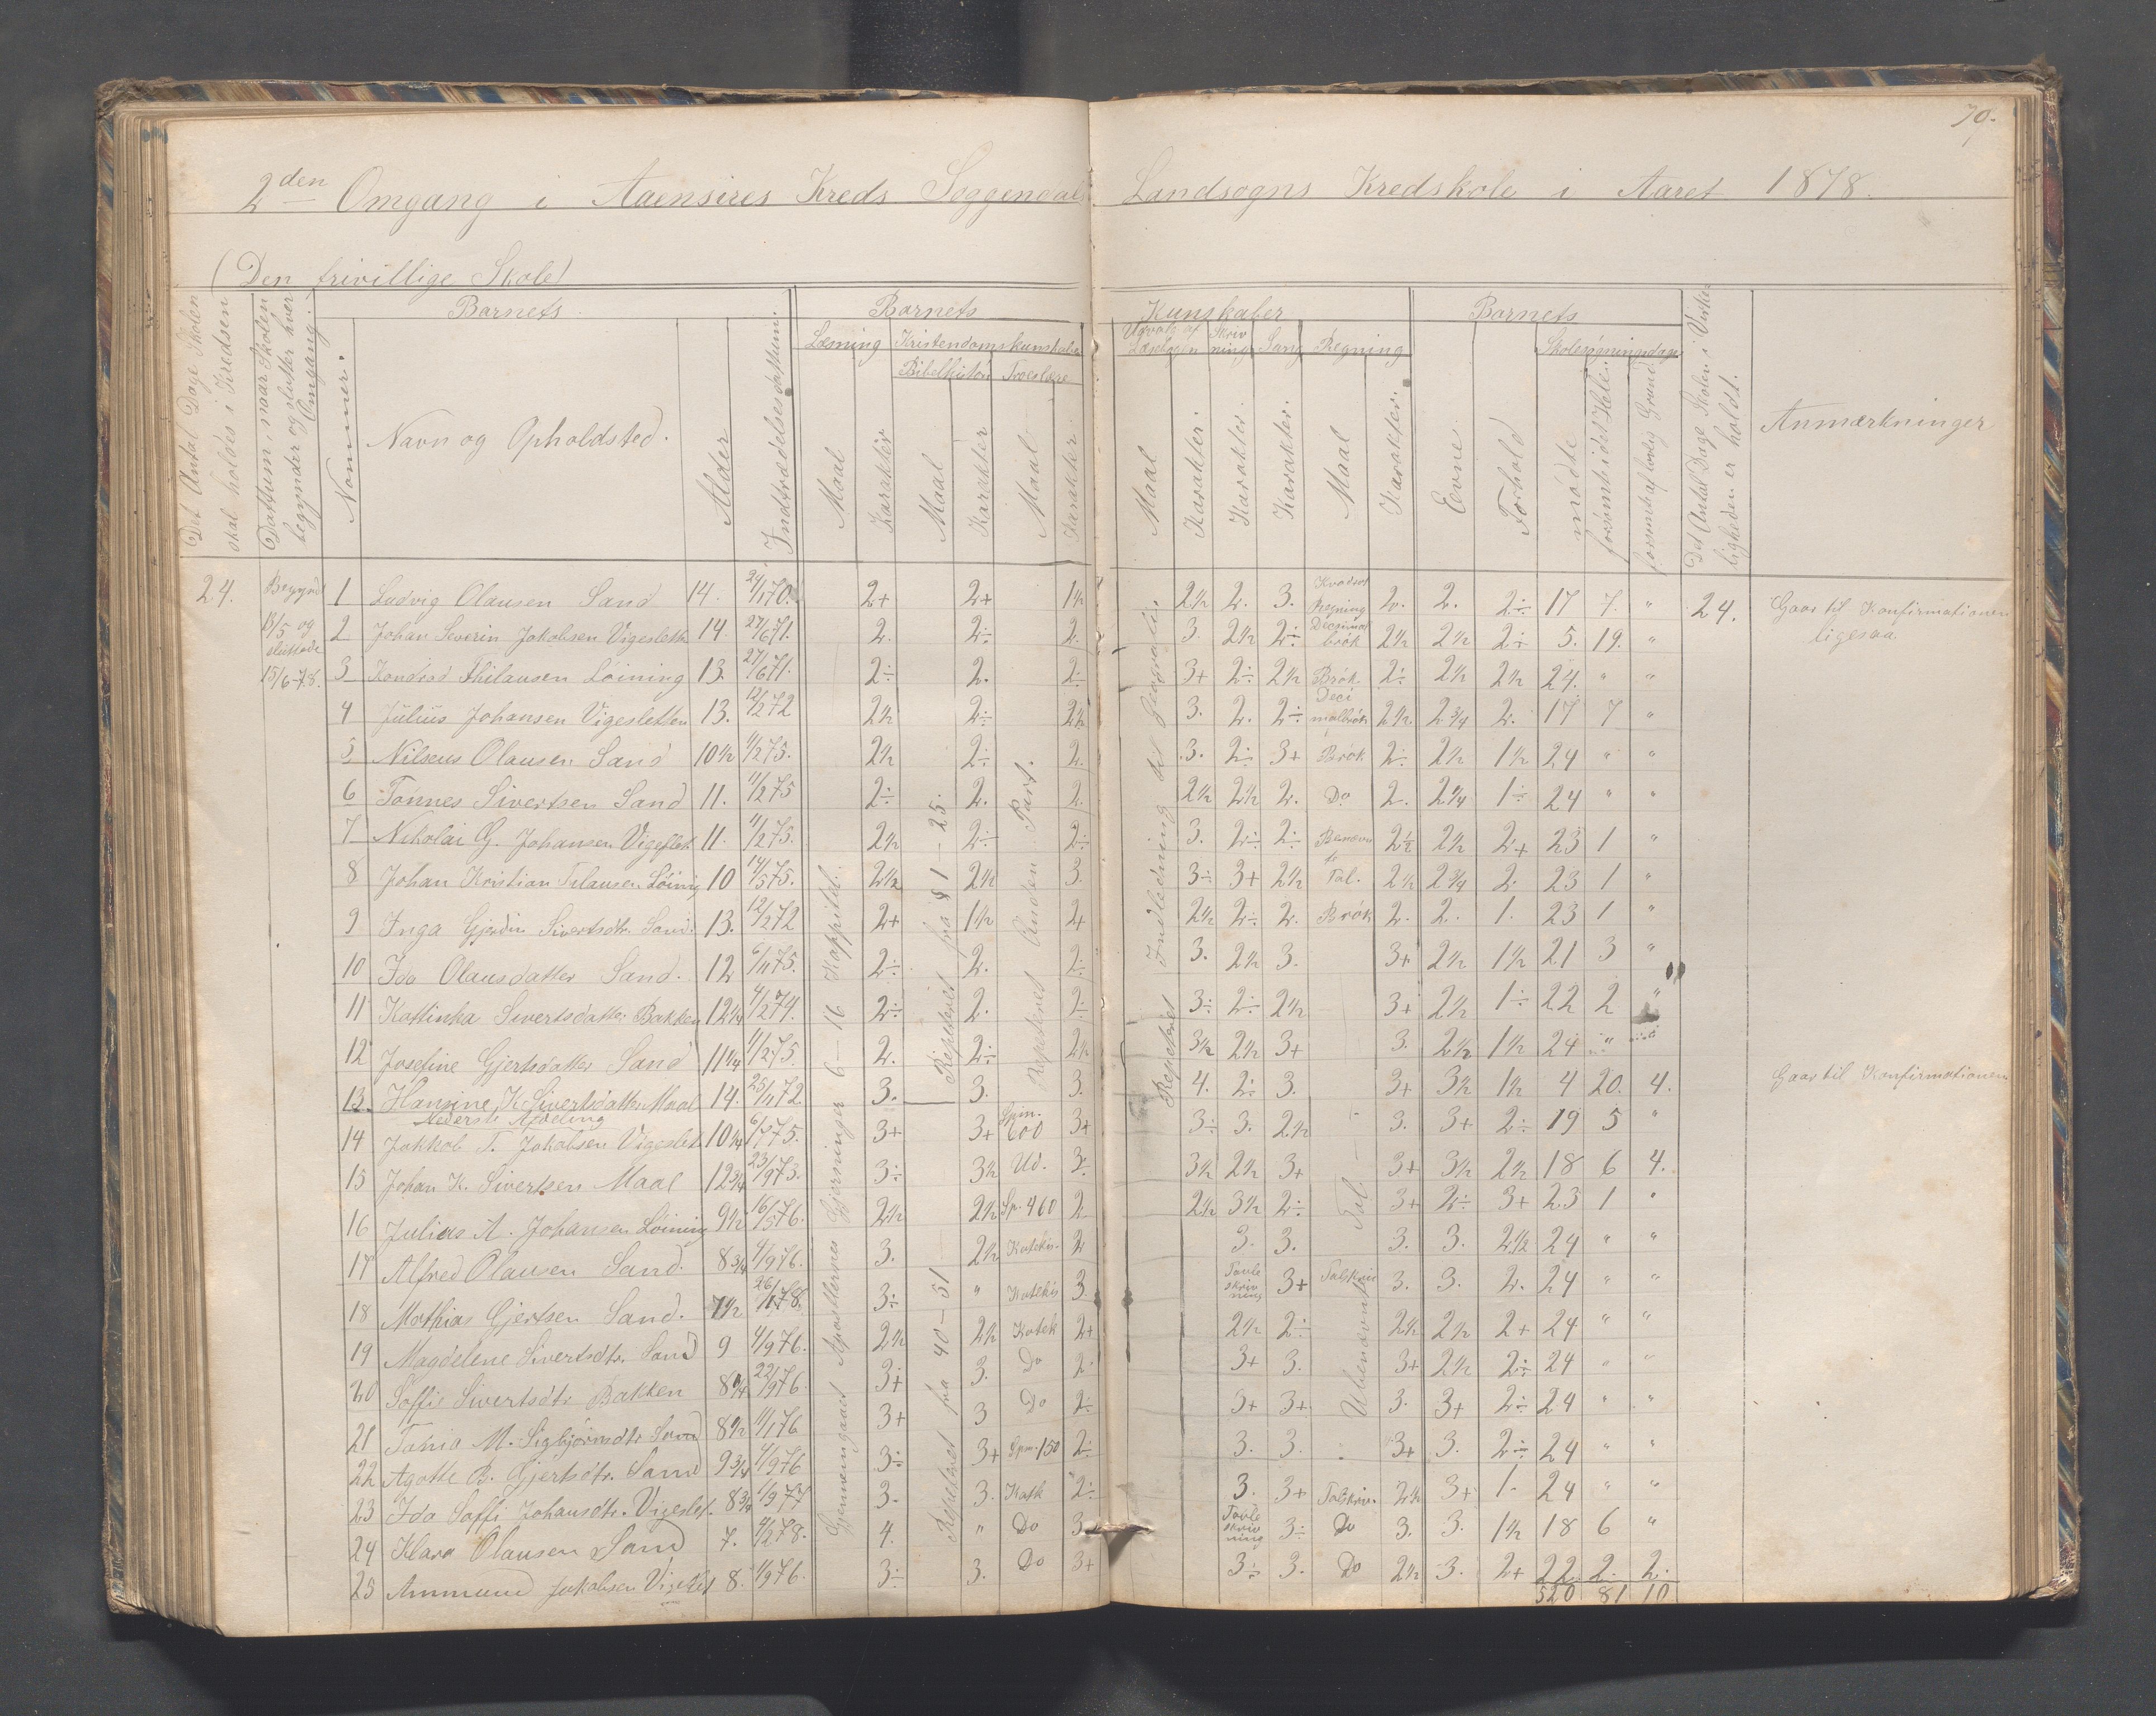 70.
2den Omgang i Aaensires Kreds Soggendals Landsogns Kredskole i Aaret 1878.
(Den frivillige Skole)
Det Antal Dage Skolen skal holdes i Kredsen
Dattum, naar Skolen begynder og slutter hver Omgang.
Nommer.
Barnets
Navn og Opholdsted.
Alder
Indtrædelsesdattum.
Barnets Kunskaber
Læsning Kristendomskunskaber
Bibelhistorie Troeslære
Maal Karakter Maal Karakter Maal Karakter
Udvalg af Læsebogen Skrivning Sang Regning
Maal Karakter. Karakter. Karakter. Maal Karakter.
Barnets
Evne. Forhold
Skolesøgningsdage
mødte forsømt i det Hele forsømt af lovlig Grund
Det Antal Dage Skolen i Virkeligheden er holdt.
Anmærkninger
24. Begyndt 13/5 og sluttede 15/6-78.
1 Ludvig Olausen Sand 14. 24/1 70. 2+ 2+ 1½ 2½ 2. 3. Kvadrat Regning 2. 2. 2÷ 17 7. " 24. Gaar til Konfirmationen
2 Johan Severin Jakobsen Vigeslett 14. 27/6 71. 2. 2÷ 2. 3. 2½ 2÷ Decimal brøk 2½ 2½ 2÷ 5. 19. " ligesaa.
3 Kondrad Thilausen Løining 13. 27/6 71. 2÷ 2. 2÷ 3+ 2÷ 2½ Brøk 2÷ 2½ 2½ 24. " "
4 Julius Johansen Vigesletten 13. 12/2 72 2½ 2÷ 2½ 3. 2. 2÷ Decimalbrøk 2½ 2¾ 2. 17 7 "
5 Nilseus Olausen Sand 10½ 11/2 75. 2½ 2÷ 2. 3. 2÷ 3+ Brøk 2÷ 2½ 1½ 24 " "
6 Tønnes Sivertsen Sand 11. 11/2 75 2÷ 2. 2. 2½ 2½ 2. Do 2. 2¼ 1÷ 24 " "
7 Nikolai G. Johansen Vigeslet 11. 11/2 75. 2½ 2÷ 2÷ 3. 2÷ 2÷ Benævnte 2½ 2½ 2+ 23 1 "
8 Johan Kristian Tilausen Løinig 10 14/5 75. 2½ 2½ 3. 3÷ 3+ 2½ Tal. 2½ 2¾ 2. 23 1 "
9 Inga Gjerdin Sivertsdtr. Sand. 13. 12/2 72 2+ 1½ 2+ 2½ 2÷ 2. Brøk 2. 2. 1. 23 1 "
10 Ida Olausdatter Sand. 12 6/11 75. 2÷ 2. 2÷ 3. 2½ 3. 3+ 2½ 1½ 21 3 "
11 Kattinka Sivertsdatter Bakken 12¼ 4/2 74. 2÷ 2. 2÷ 3÷ 2÷ 2½ 3+ 2½ 1÷ 22 2 "
12 Josefine Gjertsdatter Sand 11¼ 11/2 75. 2. 2÷ 2½ 3½ 2½ 3+ 3. 2½ 1½ 24 " "
13. Hansine K. Sivertsdatter Maal 14. 25/11 72. 3. 3. 3. 4. 2÷ 3. 3+ 3½ 1½ 4 20. 4. Gaar til Konfirmationen
Nederste Afdeling
14 Jakkob T. Jakobsen Vigeslet 10¼ 3+ 3+ Spm. 600 3+ 3÷ 3. 2½ 3. 3+ 2÷ 19 5 "
15 Johan K. Sivertsen Maal 12¾ 23/9 73. 3÷ 3½ Ud. 3÷ 3½ 2½ 3+ 3+ 3½ 2½ 18 6 4.
16 Julius A. Johansen Løining 9½ 16/5 76. 2½ 2½ Sp. 460 2 2½ 3½ 2÷ 3+ 2÷ 3+ 23 1 "
17 Alfred Olausen Sand. 8¾ 4/9 76. 3. 2½ Katekis. 2 3. 3. 3. 3. 2½ 24 " "
18 Mathias Gjertsen Sand. 7½ 3÷ " Katekis 3. Tavle skrivning 3+ Talskriv 3. 3. 2. 24 " "
19 Magdelene Sivertsdtr. Sand 9 4/9 76. 2½ 2½ Katek 2+ 2½ 2÷ 2½ 2½ 2+ 24 " "
20 Soffie Sivertsdtr Bakken 8¼ 22/9 76. 3+ 3. Do 2. 3+ 3. 3+ 2½ 2÷ 24 " "
21 Tonia M. Sigbjørnsdtr Sand 8½ 11/1 76 3+ 3 Do 2÷ 3+ 3+ 3. 3+ 2÷ 24 " "
22 Agatte B. Gjertsdtr. Sand 9¾ 4/9 76 3÷ 3+ Spm. 150 2÷ 3. 3. 3+ 3. 2÷ 24 " "
23 Ida Soffi Johansdtr. Vigeslet. 8¾ 1/9 77 3. 3. Katk 2÷ 3. 3+ Talskriv. 2½ 3+ 1. 24 " "
24 Klara Olausen Sand 7. 4/2 78. 4. " Do 3. Tavle skrivning 3÷ Do 3. 3. 1½ 18 6 "
25 Ammund Jakobsen Vigeslet 8. 1/9 76. 3÷ 3. Do 3+ 3÷ 3. Do 2½ 3. 2+ 22 2. 2.
520 81 10
Gjennemgaaet Apostlernes Gjerninger 6 — 16 Kappittel.
Repeteret fra § 1 — 25.
Repeteret fra 40 — 51
Repeteret Anden Part.
Repeteret Indledning til Geografie.
Ubenævnte Tal.